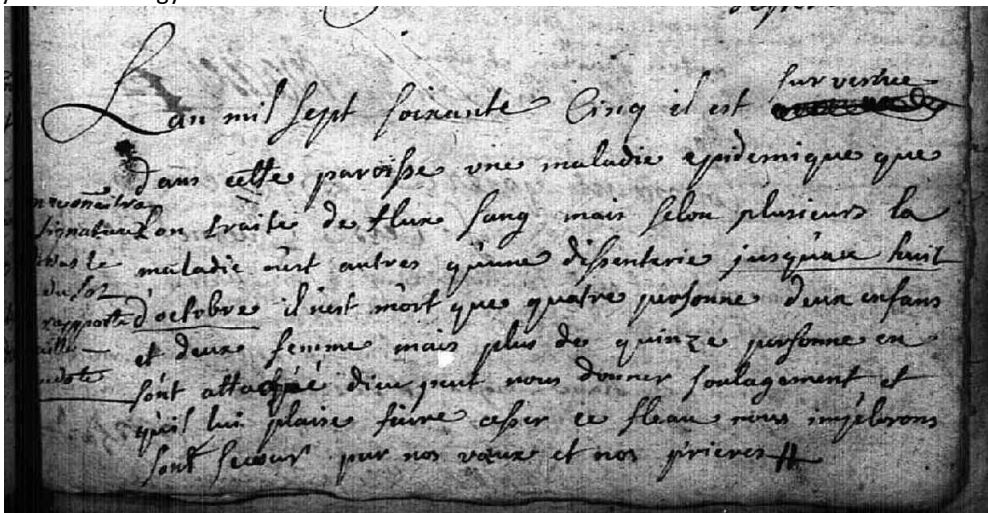 L'an mil sept soixante Cinq il est survenue
dans cette paroisse une maladie epidemique que
l'on traite de flux sang mais selon plusieurs la
maladie n'est autres qu'une dissenterie jusqu'au huit
d'octobre il n'est mort que quatre personne deux enfans
et deux femme mais plus de quinze personne en
sont attaqué dieu peut nous donner soulagement et
qu'il lui plaise faire cesser ce fleau nous implorons
sont secour par nos vœux et nos prieres
rapporte